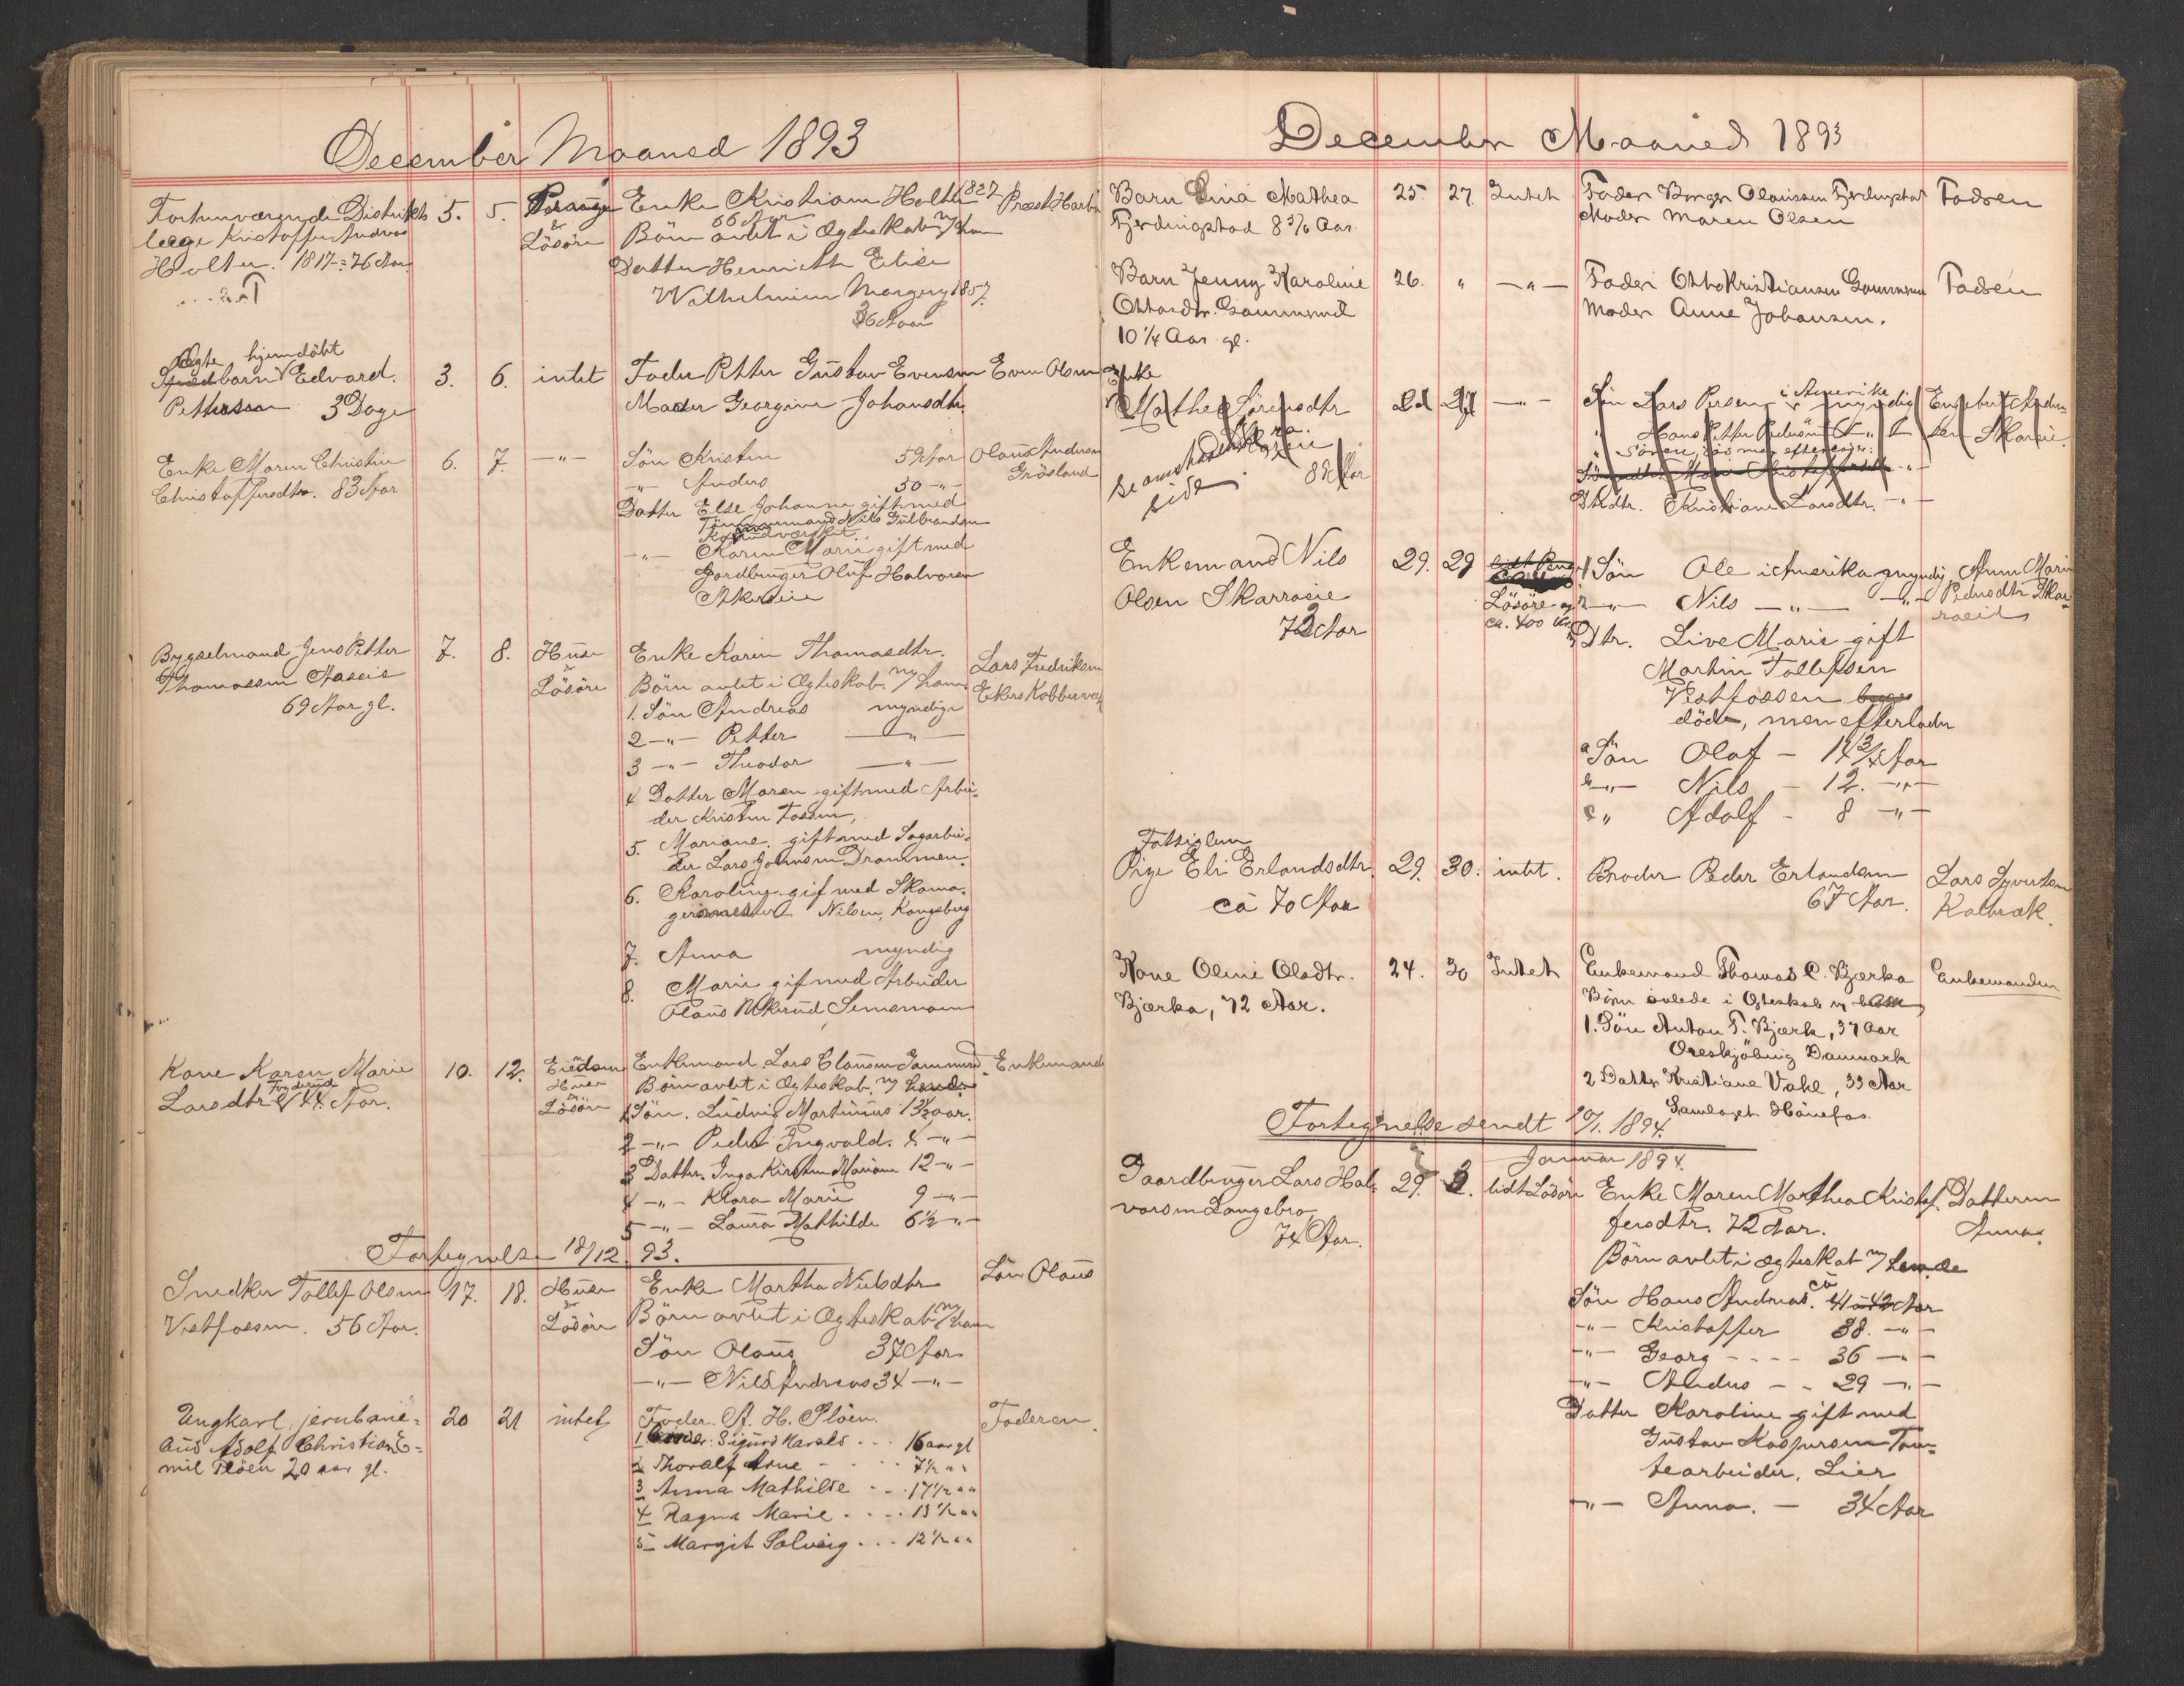 December Maaned 1893
Forhenværende Distrikts 5. 5. Penge Enke Kristiane Holter 1827 Præst Harbo
læge Kristoffer Andreas & 66 Aar
Holter. 1817 = 76 Aar Lösöre Börn avlet i Ægteskab m/ ham
Datter Henriette Elise
Wilhelmine Margery 1857.
36 Aar
Ægte hjemdöbt
barn Edvard. 3. 6. intet Fader Petter Gustav Evensen Even Olsen
Pettersen 3 Dage Moder Georgine Johansdtr.
Enke Maren Christine 6. 7. —"— Sön Kristen 59 Aar Olaus Andersen
Christoffersdtr. 83 Aar —"— Anders 50 —"— Gröslund
Datter Else Johanne gift med
Tömmermand Nils Gulbrandsen
—"— Karen Marie gift med
Gardbruger Oluf Halvorsen
Bygselmand Jens Petter 7. 8. Huse Enke Karen Thomasdtr. Lars Fredriksen
Thomassen Aaseie & Börn avlet i Ægteskab m/ ham Ekers Kobberværk
69 Aar gl. Lösöre 1. Sön Andreas myndige
2 —"— Petter —"—
3 —"— Theodor —"—
4 Datter Maren gift med Arbei-
der Kristen Fossen,
5. Mariane gift med Sagarbei-
der Lars Johnsen Drammen.
6. Karoline gif med Skoma-
germester Nilsen, Kongsberg
7. Anna myndig
8. Marie gif med Arbeider
Olaus
Kone Karen Marie 10. 12. Eiendom Enkemand Lars Clausen Enkemand
Larsdtr 44 Aar. Huse Börn avlet i Ægteskab m/ hende
Lösöre 1 Sön. Ludvig Martinius 13½ aar.
2 —"— Peder Ingvald. 8 —"—
3 Datter. Inga Kirstine Mariane 12 —"—
4 —"— Klara Marie 9 —"—
5 —"— Laura Mathilde 6½ "—
Fortegnelse 18/12. 93.
Snedker Tollef Olsen 17. 18. Huse Enke Martha Nielsdtr Sön Olaus
Vestfossen. 56 Aar. & Lösöre Börn avlet i Ægteskab m/ ham
Sön Olaus 37 Aar
—"— Nils Andreas 34 —"—
Ungkarl, jernbane- 20 21 intet Fader. A. H. Ploen. Faderen.
Adolf Christian E- 1 Sigurd Harald . . . 16 aar gl
mil Ploen 20 aar gl. 2 Thoralf Arne - . . . 7½ " "
3 Anna Mathilde . . . 17½ " "
4 Ragna Marie . . . . 15½ " "
5 Margit Solveig . . . 12½ " "
December Maaned 1893
Barn Lina Mathea 25. 27. Intet Fader Borger Olaussen Fjerdingstad Fadren
Fjerdingstad 8 3/6 Aar. Moder Maren Olsen
Barn Jenny Karoline 26. " —"— Fader Otto Kristiansen Fadren
Ottosdtr. Moder Anne Johansen.
10¼ Aar gl.
Enke
Mathea Sörensdtr 27 —"— Sön Lars Persen i Amerika myndig Engebret Ander-
" Hans Petter Pedersen sen
se anden " Sören, död men efterlader:
side. 82 Aar
Dtrdtr. Kristiane Larsdtr. —"—
Enkemand Nils 29. 29 lidt Penge 1 Sön Ole i Amerika myndig Anne Marie
Olsen Skarraeie Lösöre og 2 —"— Nils —"— —"— Pedersdtr Skar-
73 Aar ca. 400 Kr 3 Dtr. Live Marie gift raeid
Martin Tollefsen
Vestfossen
död, men efterlader
a Sön Olaf - 14 3/4 Aar
b —"— Nils - 12. —"—
c " Adolf - 8 —"—
Fattiglem
Pige Eli Erlandsdtr. 29. 30. intet. Broder Peder Erlandsen Lars Syvertsen
ca 70 Aar 67 Aar. Kolbræk.
Kone Oline Olsdtr. 24. 30 Intet Enkemand Thomas C. Bjerka Enkemanden
Bjerka, 72 Aar. Börn avlede i Ægteskab m/
1. Sön Anton T. Bjerk, 37 Aar
Danmark
2 Datter Kristiane Vahl, 33 Aar
Samlaget Hönefos.
Fortegnelse sendt 10/1. 1894.
Januar 1894.
Gaardbruger Lars Hal- 29. 3. lidt Lösöre Enke Maren Marthea Kristof- Datteren
vorsen Langebro fersdtr. 72 Aar. Anna.
74 Aar. Börn avlet i ægteskab m/ hende
Sön Hans Andreas. ca 41 a 42 Aar
—"— Kristoffer 38. —"—
—"— Georg - - - - 36 —"—
—"— Anders - - 29 —"—
Datter Karoline gift med
Gustav Kaspersen Tom-
tearbeider, Lier
—"— Anna. - 34 Aar